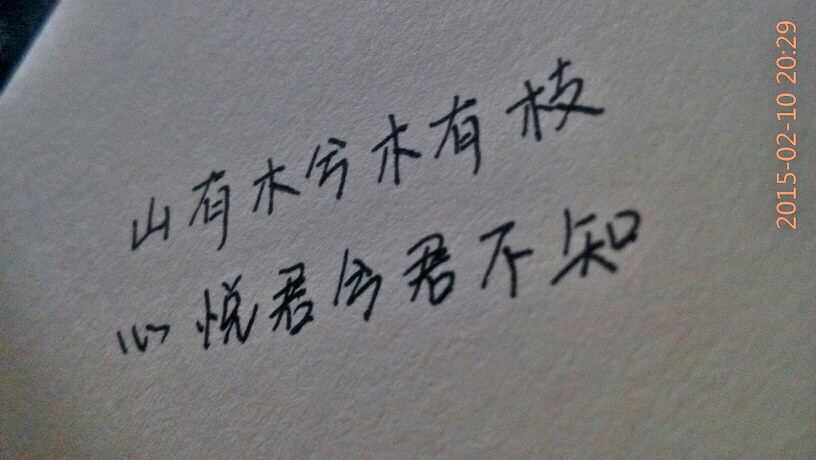 山有木兮木有枝
心悦君兮君不知
2015-02-10 20:29